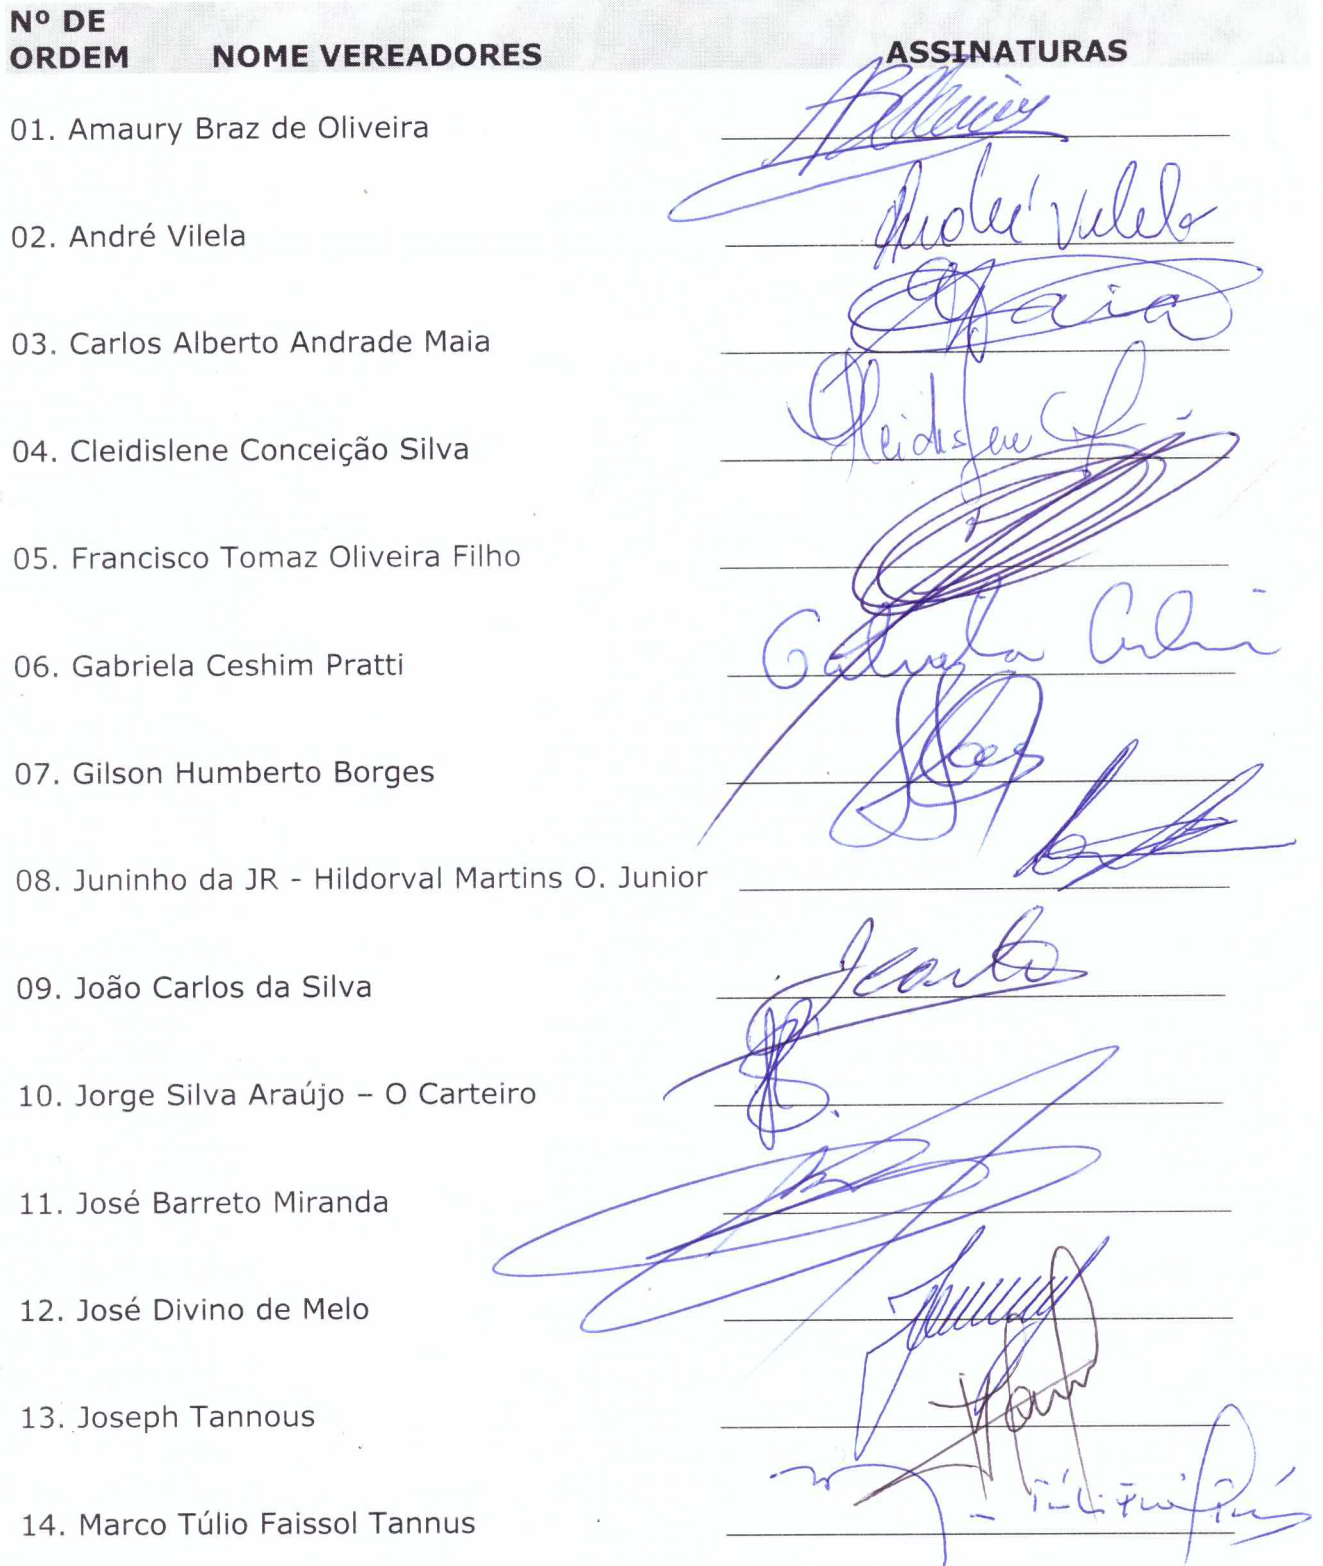 Nº DE
ORDEM NOME VEREADORES ASSINATURAS
01. Amaury Braz de Oliveira
02. André Vilela André Vilela
03. Carlos Alberto Andrade Maia Maia
04. Cleidislene Conceição Silva Cleidislene
05. Francisco Tomaz Oliveira Filho
06. Gabriela Ceshim Pratti Gabriela
07. Gilson Humberto Borges
08. Juninho da JR - Hildorval Martins O. Junior
09. João Carlos da Silva JCarlos
10. Jorge Silva Araújo – O Carteiro
11. José Barreto Miranda
12. José Divino de Melo
13. Joseph Tannous
14. Marco Túlio Faissol Tannus